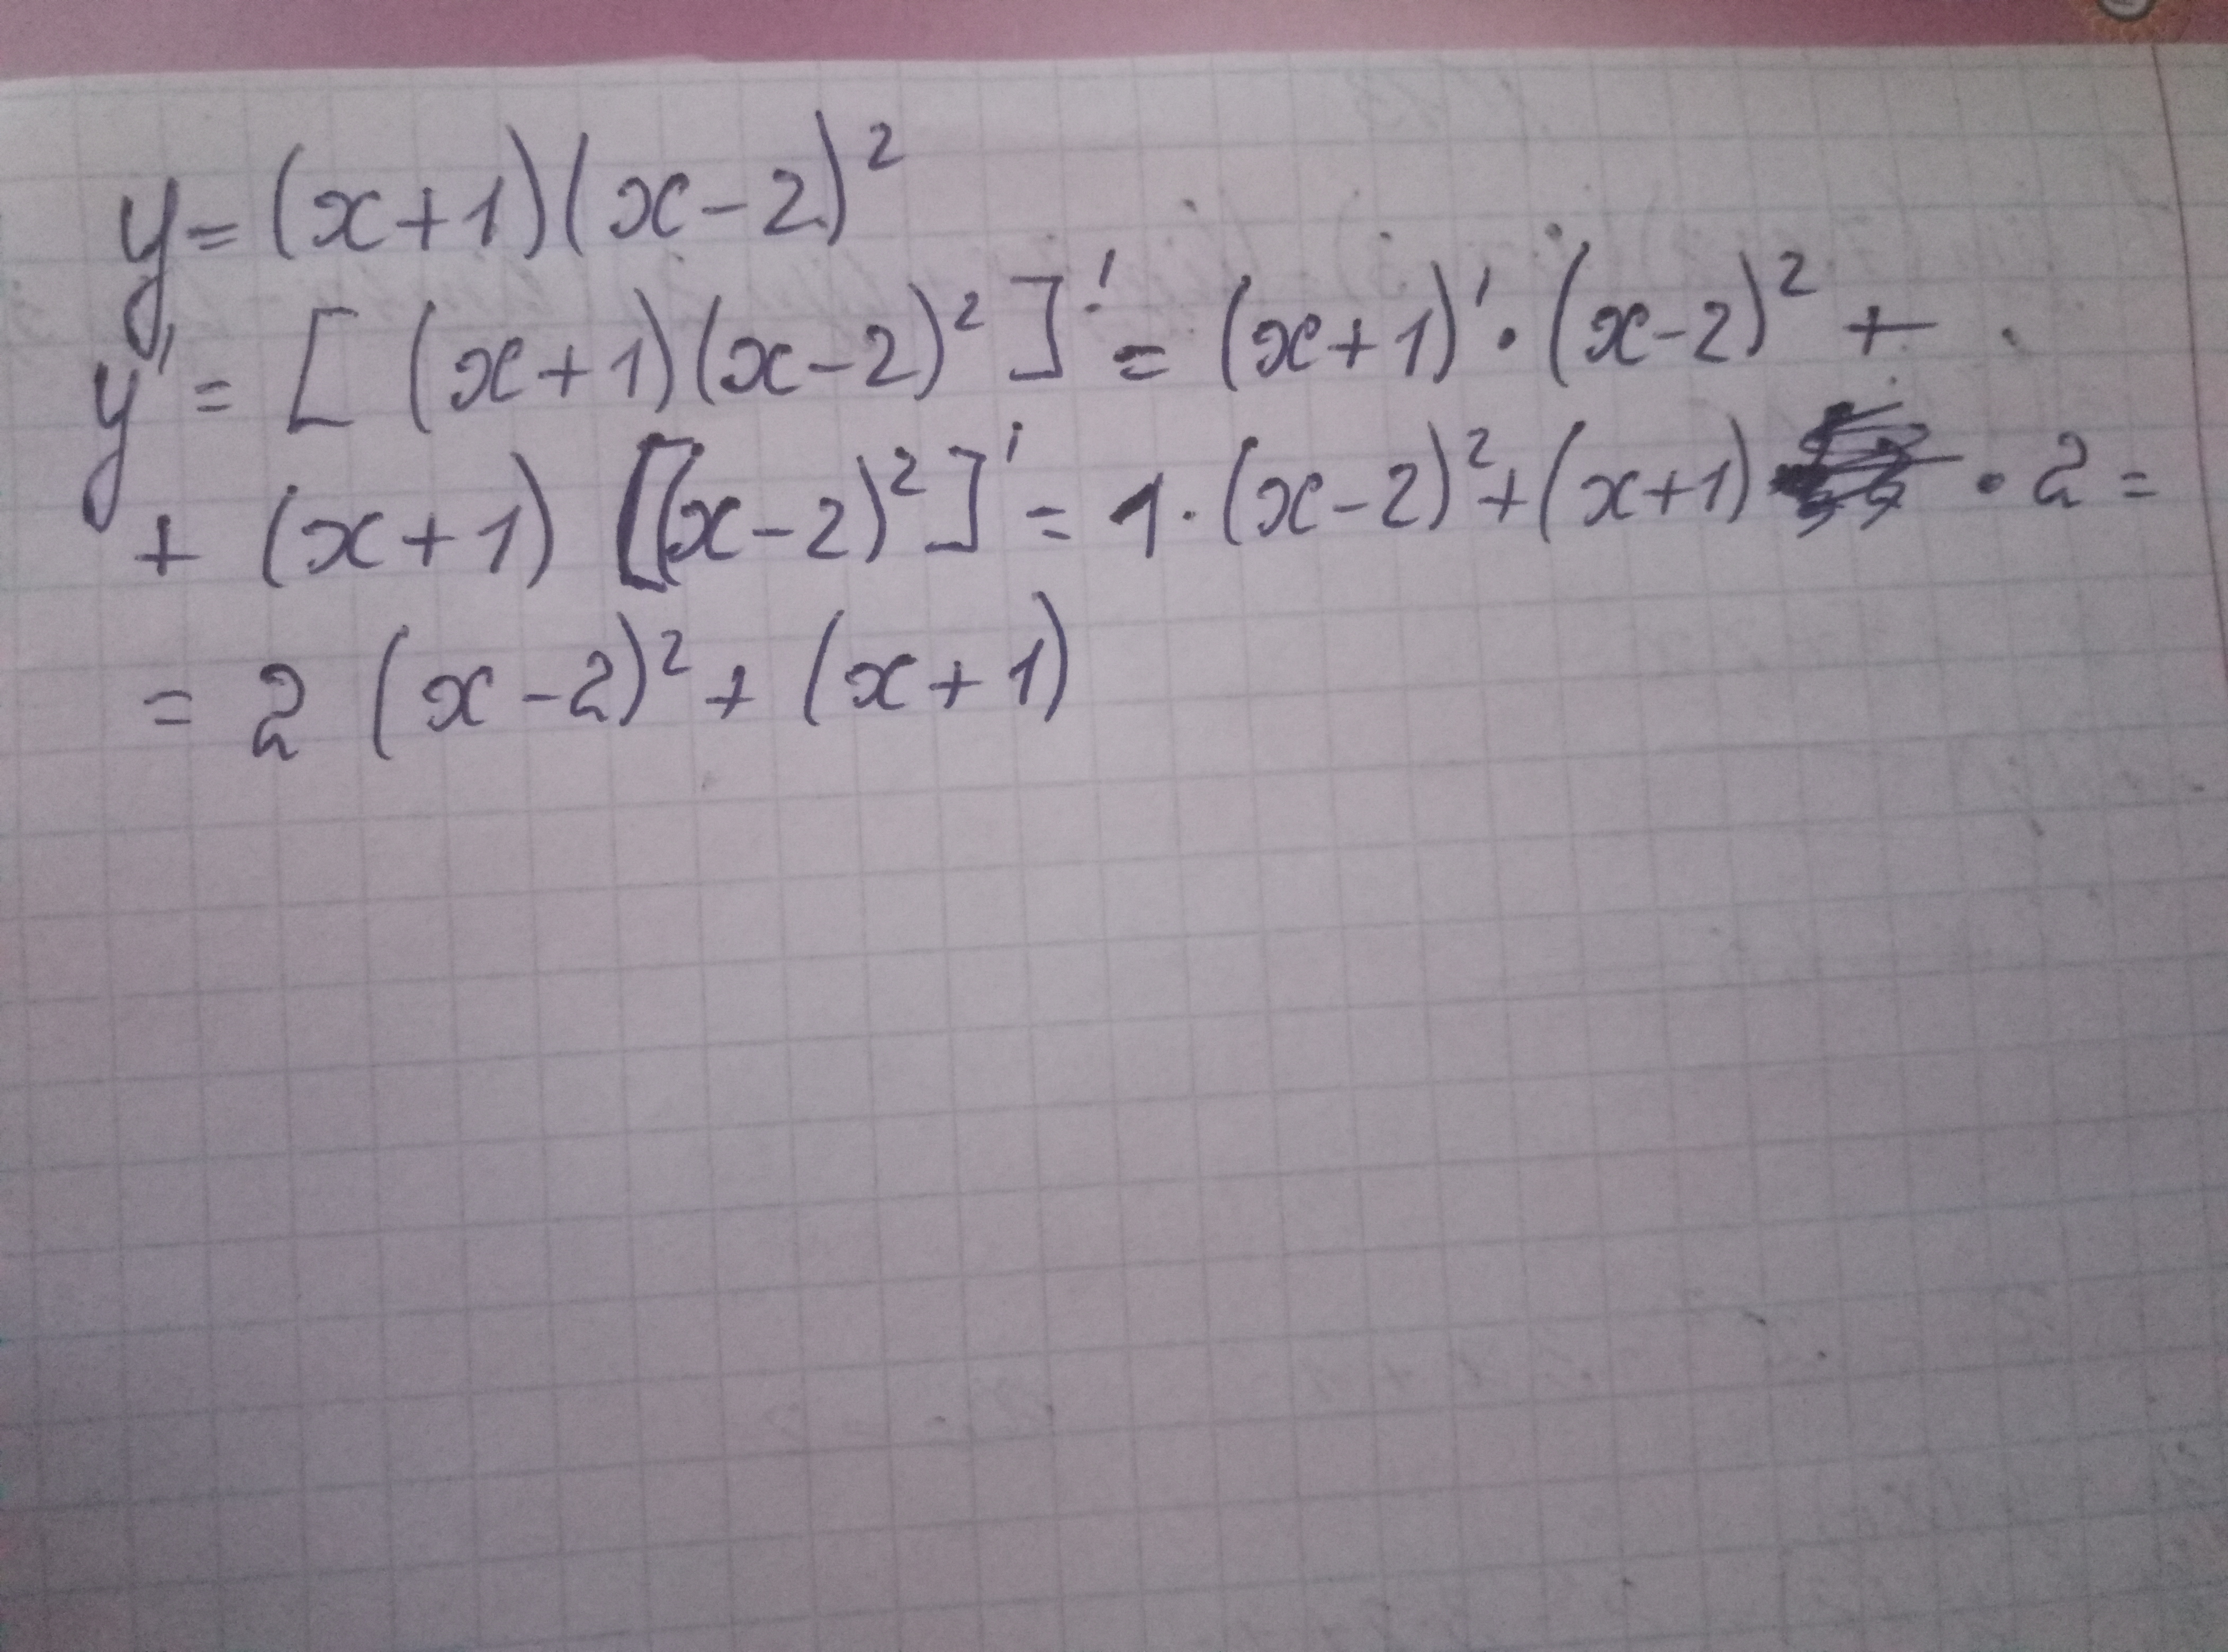 y=(x+1)(x-2)²
y'=[(x+1)(x-2)²]'=(x+1)'·(x-2)²+
+(x+1)[(x-2)²]'=1·(x-2)²+(x+1)·2=
=2(x-2)²+(x+1)